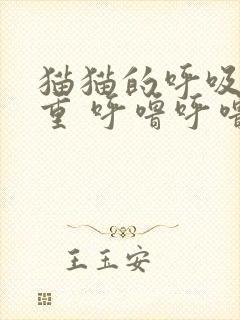 猫猫的呼吸
重 呼噜呼噜
王玉安